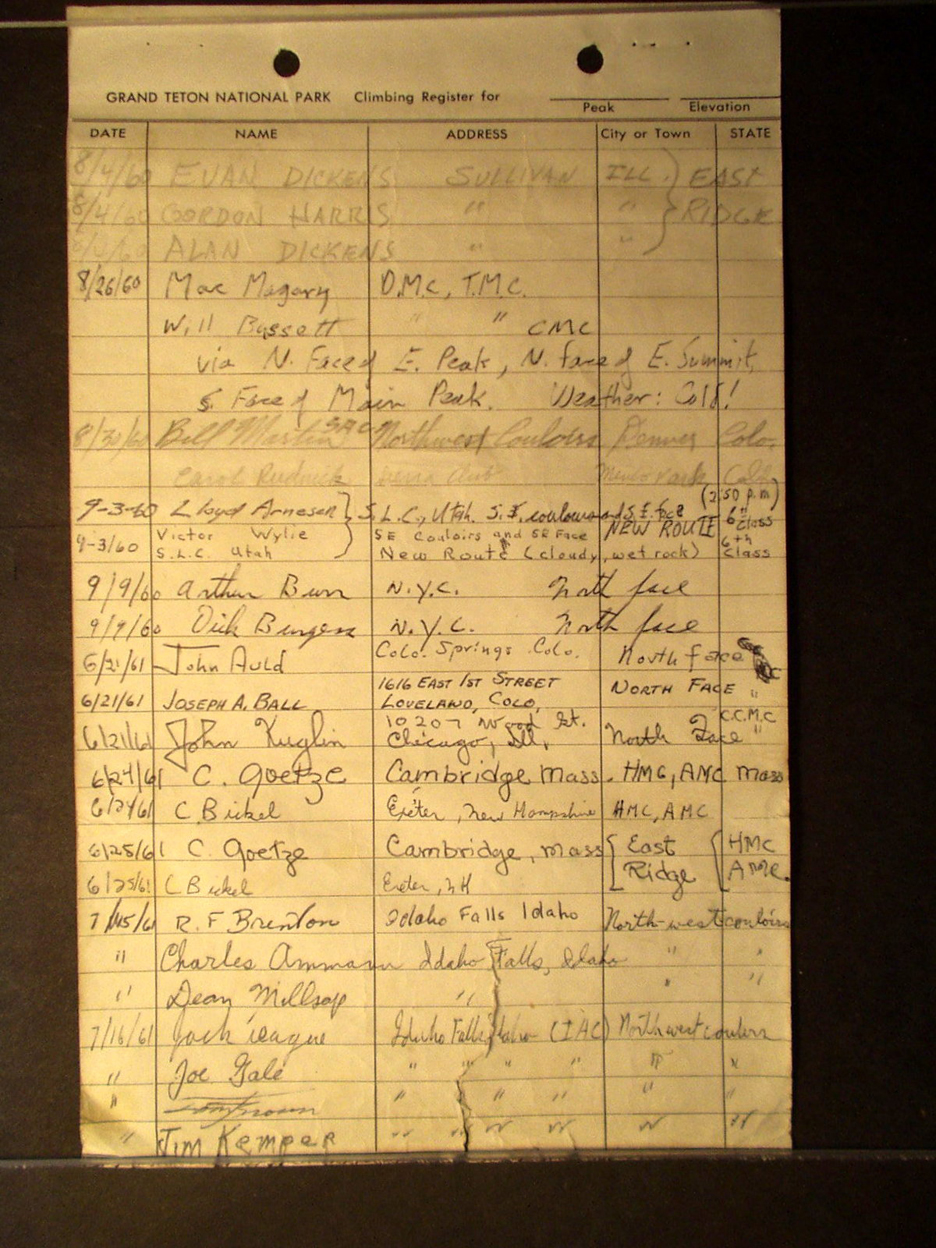 GRAND TETON NATIONAL PARK Climbing Register for
Peak Elevation
DATE NAME ADDRESS City or Town STATE
8/4/60 EVAN DICKENS SULLIVAN ILL. } EAST
8/4/60 GORDON HARRIS " " } RIDGE
8/4/60 ALAN DICKENS " "
8/26/60 Mac Magary D.M.C, T.M.C.
Will Bassett " " CMC
via N. Face of E. Peak, N. face of E. Summit,
S. Face of Main Peak. Weather: Cold!
8/30/60 Bill Martin Northwest Couloirs Denver Colo.
Carol Rudnick Sierra Club Menlo Park, Calif
(2:50 p.m)
9-3-60 Lloyd Arnesen } S.L.C., Utah. S.E. couloirs and S.E. face NEW ROUTE 6th class
9-3/60 Victor Wylie SE Couloirs and SE Face 6th
S.L.C. Utah New Route (cloudy, wet rock) class
9/9/60 Arthur Burr N.Y.C. North face
9/9/60 Dick Burgess N.Y.C. North face
6/21/61 John Auld Colo. Springs Colo. North face
6/21/61 JOSEPH A. BALL 1616 EAST 1ST STREET NORTH FACE "
LOVELAND, COLO,
6/21/61 John Kuglin 10207 Wood St. North Face C.C.M.C
Chicago, Ill, "
6/24/61 C. Goetze Cambridge Mass. HMC, AMC Mass
6/24/61 C. Bickel Exeter, New Hampshire HMC, AMC
6/25/61 C. Goetze Cambridge, Mass [ East { HMC
6/25/61 C Bickel Exeter, NH Ridge AMC.
7/15/61 R. F Brenton Idaho Falls Idaho North-west couloirs
" Charles Ammann Idaho Falls, Idaho " "
" Dean Millsap " " "
7/16/61 Jack Teague Idaho Falls Idaho (IAC) Northwest couloirs
" Joe Gale " " " " "
" " " " " "
" Jim Kemper " " " " " "